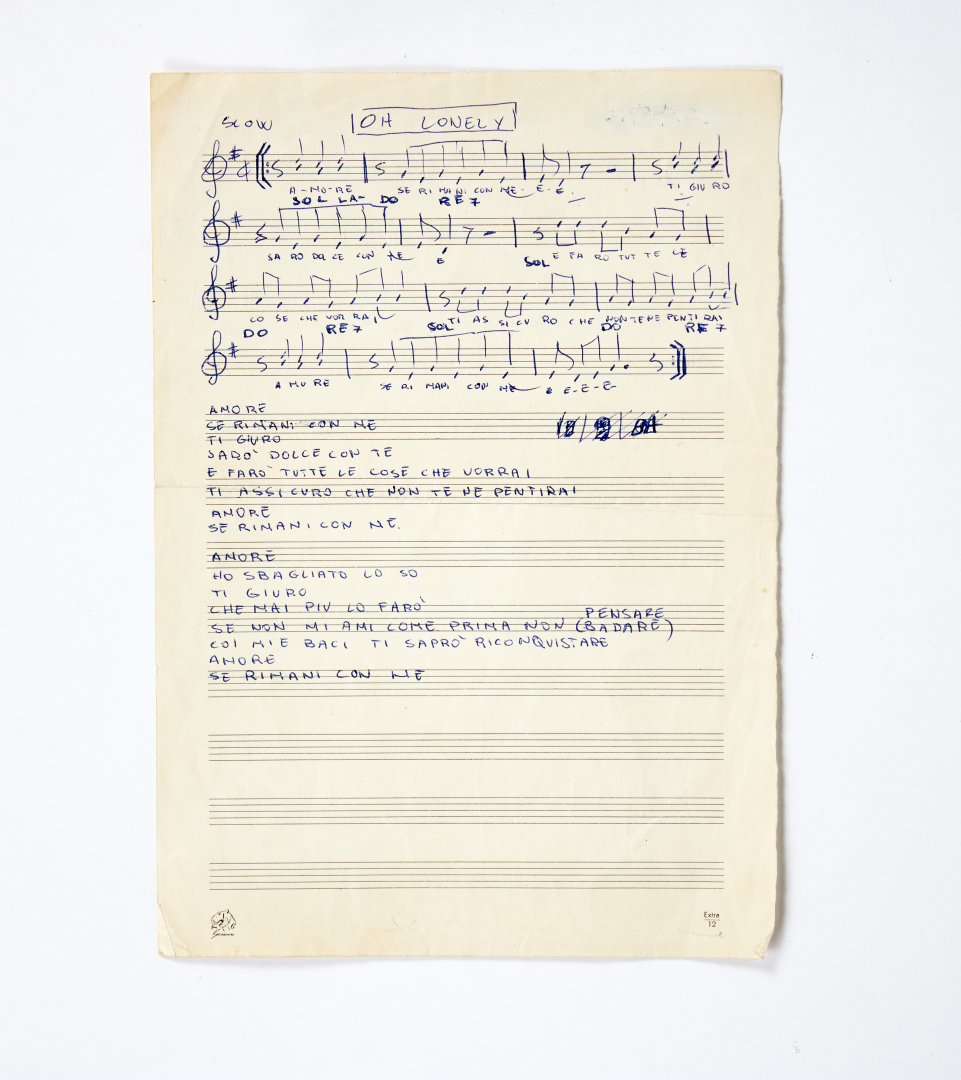 SLOW OH LONELY
A-MO-RE SE RI MA NI CON ME- E-E. TI GIU RO
SOL LA- DO RE7
SA RO DOL CE CON TE E E FA RO TUT TE LE
SOL
CO SE CHE VOR RAI TI AS SI CU RO CHE NON TE NE PENTI RAI
DO RE7 SOL DO RE7
A MO RE SE RI MANI CON ME E E-E-E-
AMORE
SE RIMANI CON ME
TI GIURO
SARO' DOLCE CON TE
E FARO' TUTTE LE COSE CHE VORRAI
TI ASSICURO CHE NON TE NE PENTIRAI
AMORE
SE RIMANI CON ME.
AMORE
HO SBAGLIATO LO SO
TI GIURO
CHE MAI PIU LO FARO'
PENSARE
SE NON MI AMI COME PRIMA NON (BADARE)
COI MIE BACI TI SAPRO' RICONQUISTARE
AMORE
SE RIMANI CON ME
Extra
12